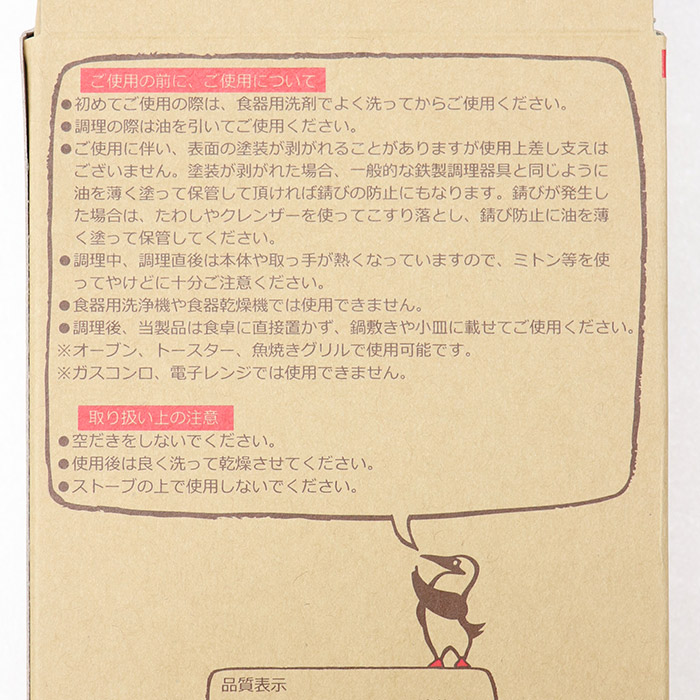 ご使用の前に、ご使用について
●初めてご使用の際は、食器用洗剤でよく洗ってからご使用ください。
●調理の際は油を引いてご使用ください。
●ご使用に伴い、表面の塗装が剥がれることがありますが使用上差し支えは
ございません。塗装が剥がれた場合、一般的な鉄製調理器具と同じように
油を薄く塗って保管して頂ければ錆びの防止にもなります。錆びが発生し
た場合は、たわしやクレンザーを使ってこすり落とし、錆び防止に油を薄
く塗って保管してください。
●調理中、調理直後は本体や取っ手が熱くなっていますので、ミトン等を使
ってやけどに十分ご注意ください。
●食器用洗浄機や食器乾燥機では使用できません。
●調理後、当製品は食卓に直接置かず、鍋敷きや小皿に載せてご使用ください。
※オーブン、トースター、魚焼きグリルで使用可能です。
※ガスコンロ、電子レンジでは使用できません。
取り扱い上の注意
●空だきをしないでください。
●使用後は良く洗って乾燥させてください。
●ストーブの上で使用しないでください。
品質表示